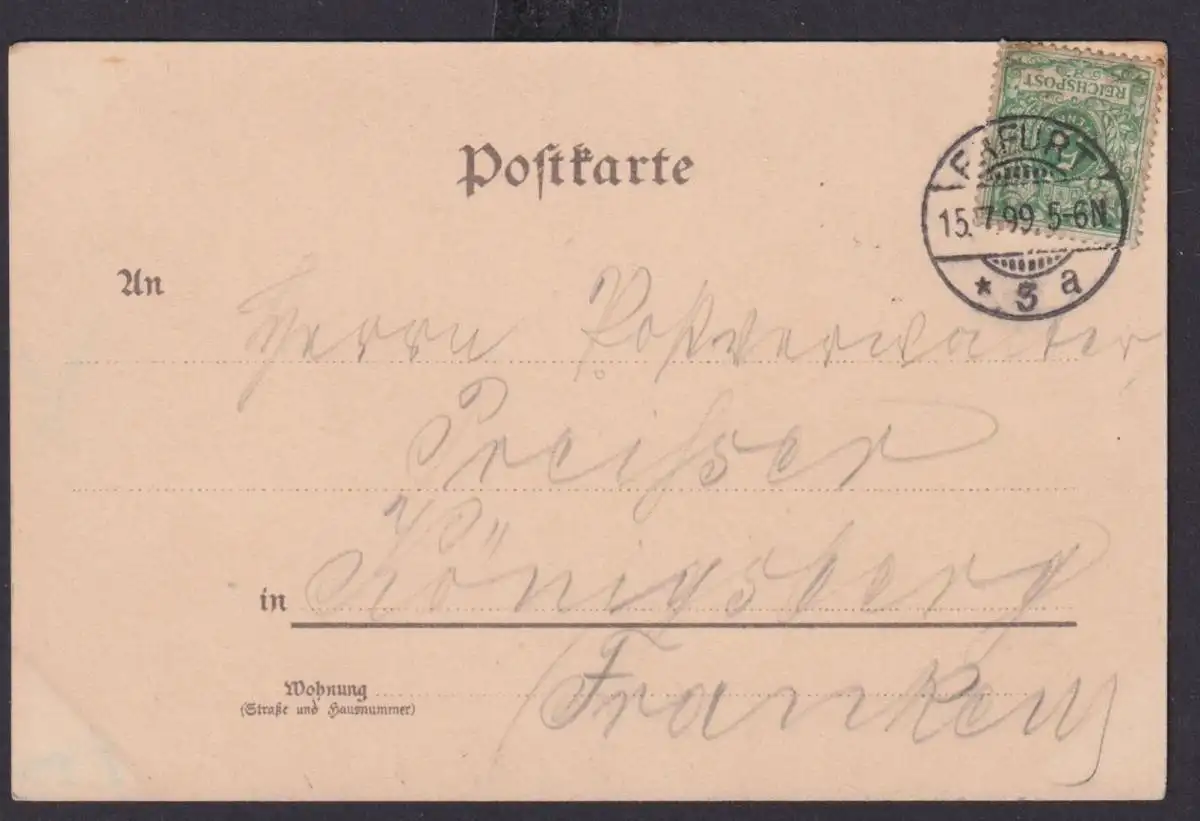 Postkarte
REICHSPOST
ERFURT
15. 7. 99. 5-6N.
* 3 a
An Herrn Postverwalter
Preißer
in Königsberg
Wohnung (Franken)
(Straße und Hausnummer)